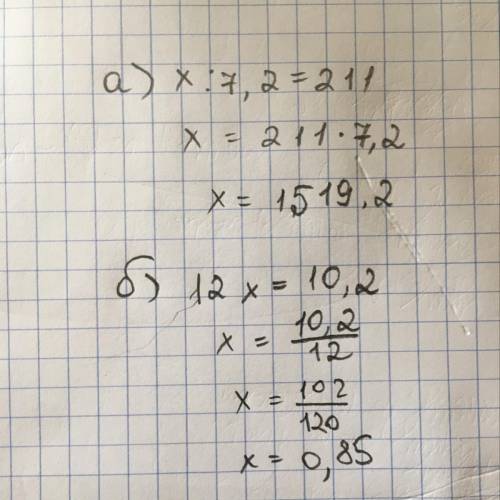 а) x : 7,2 = 211
x = 211 · 7,2
x = 1519,2
б) 12 x = 10,2
x = 10,2/12
x = 102/120
x = 0,85